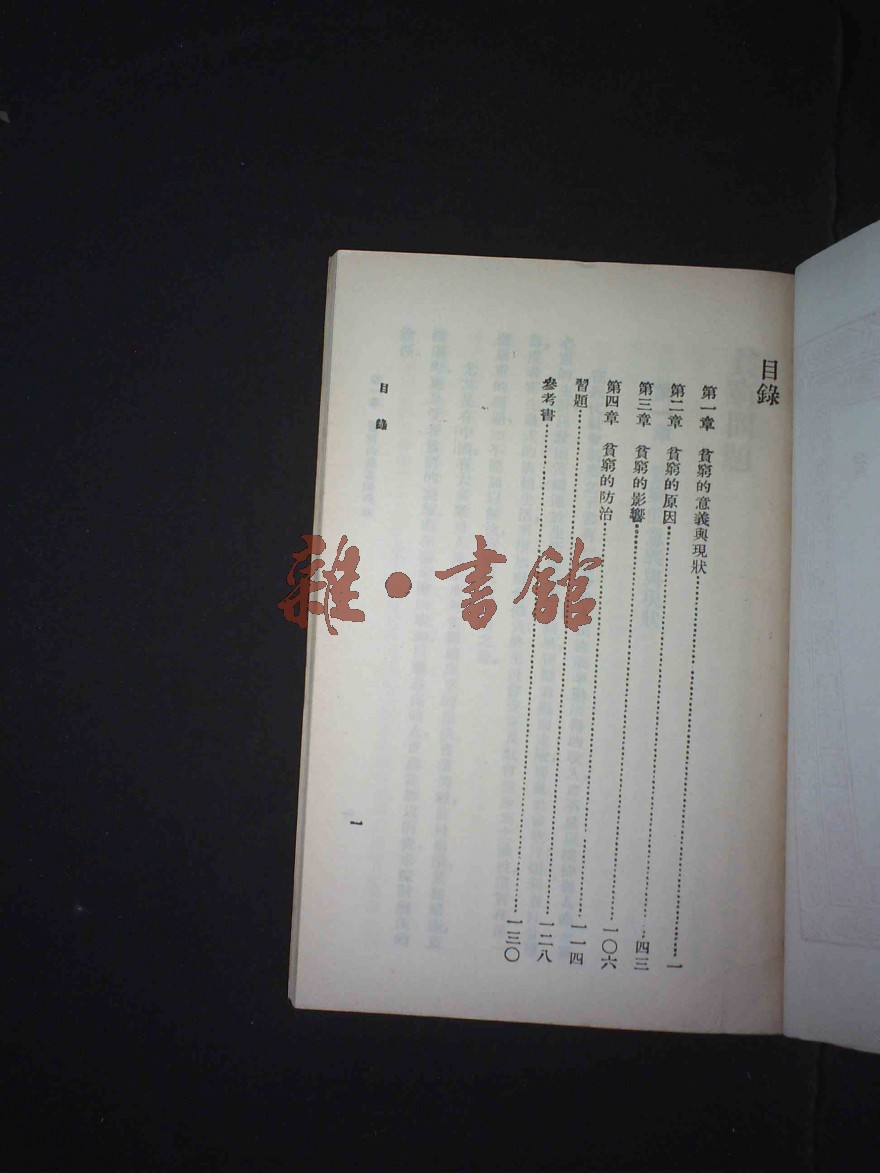 目錄
第一章　貧窮的意義與現狀……一
第二章　貧窮的原因……四三
第三章　貧窮的影響……一〇六
第四章　貧窮的防治……一一四
習題……一二八
參考書……一三〇
目錄
一
雜·書館